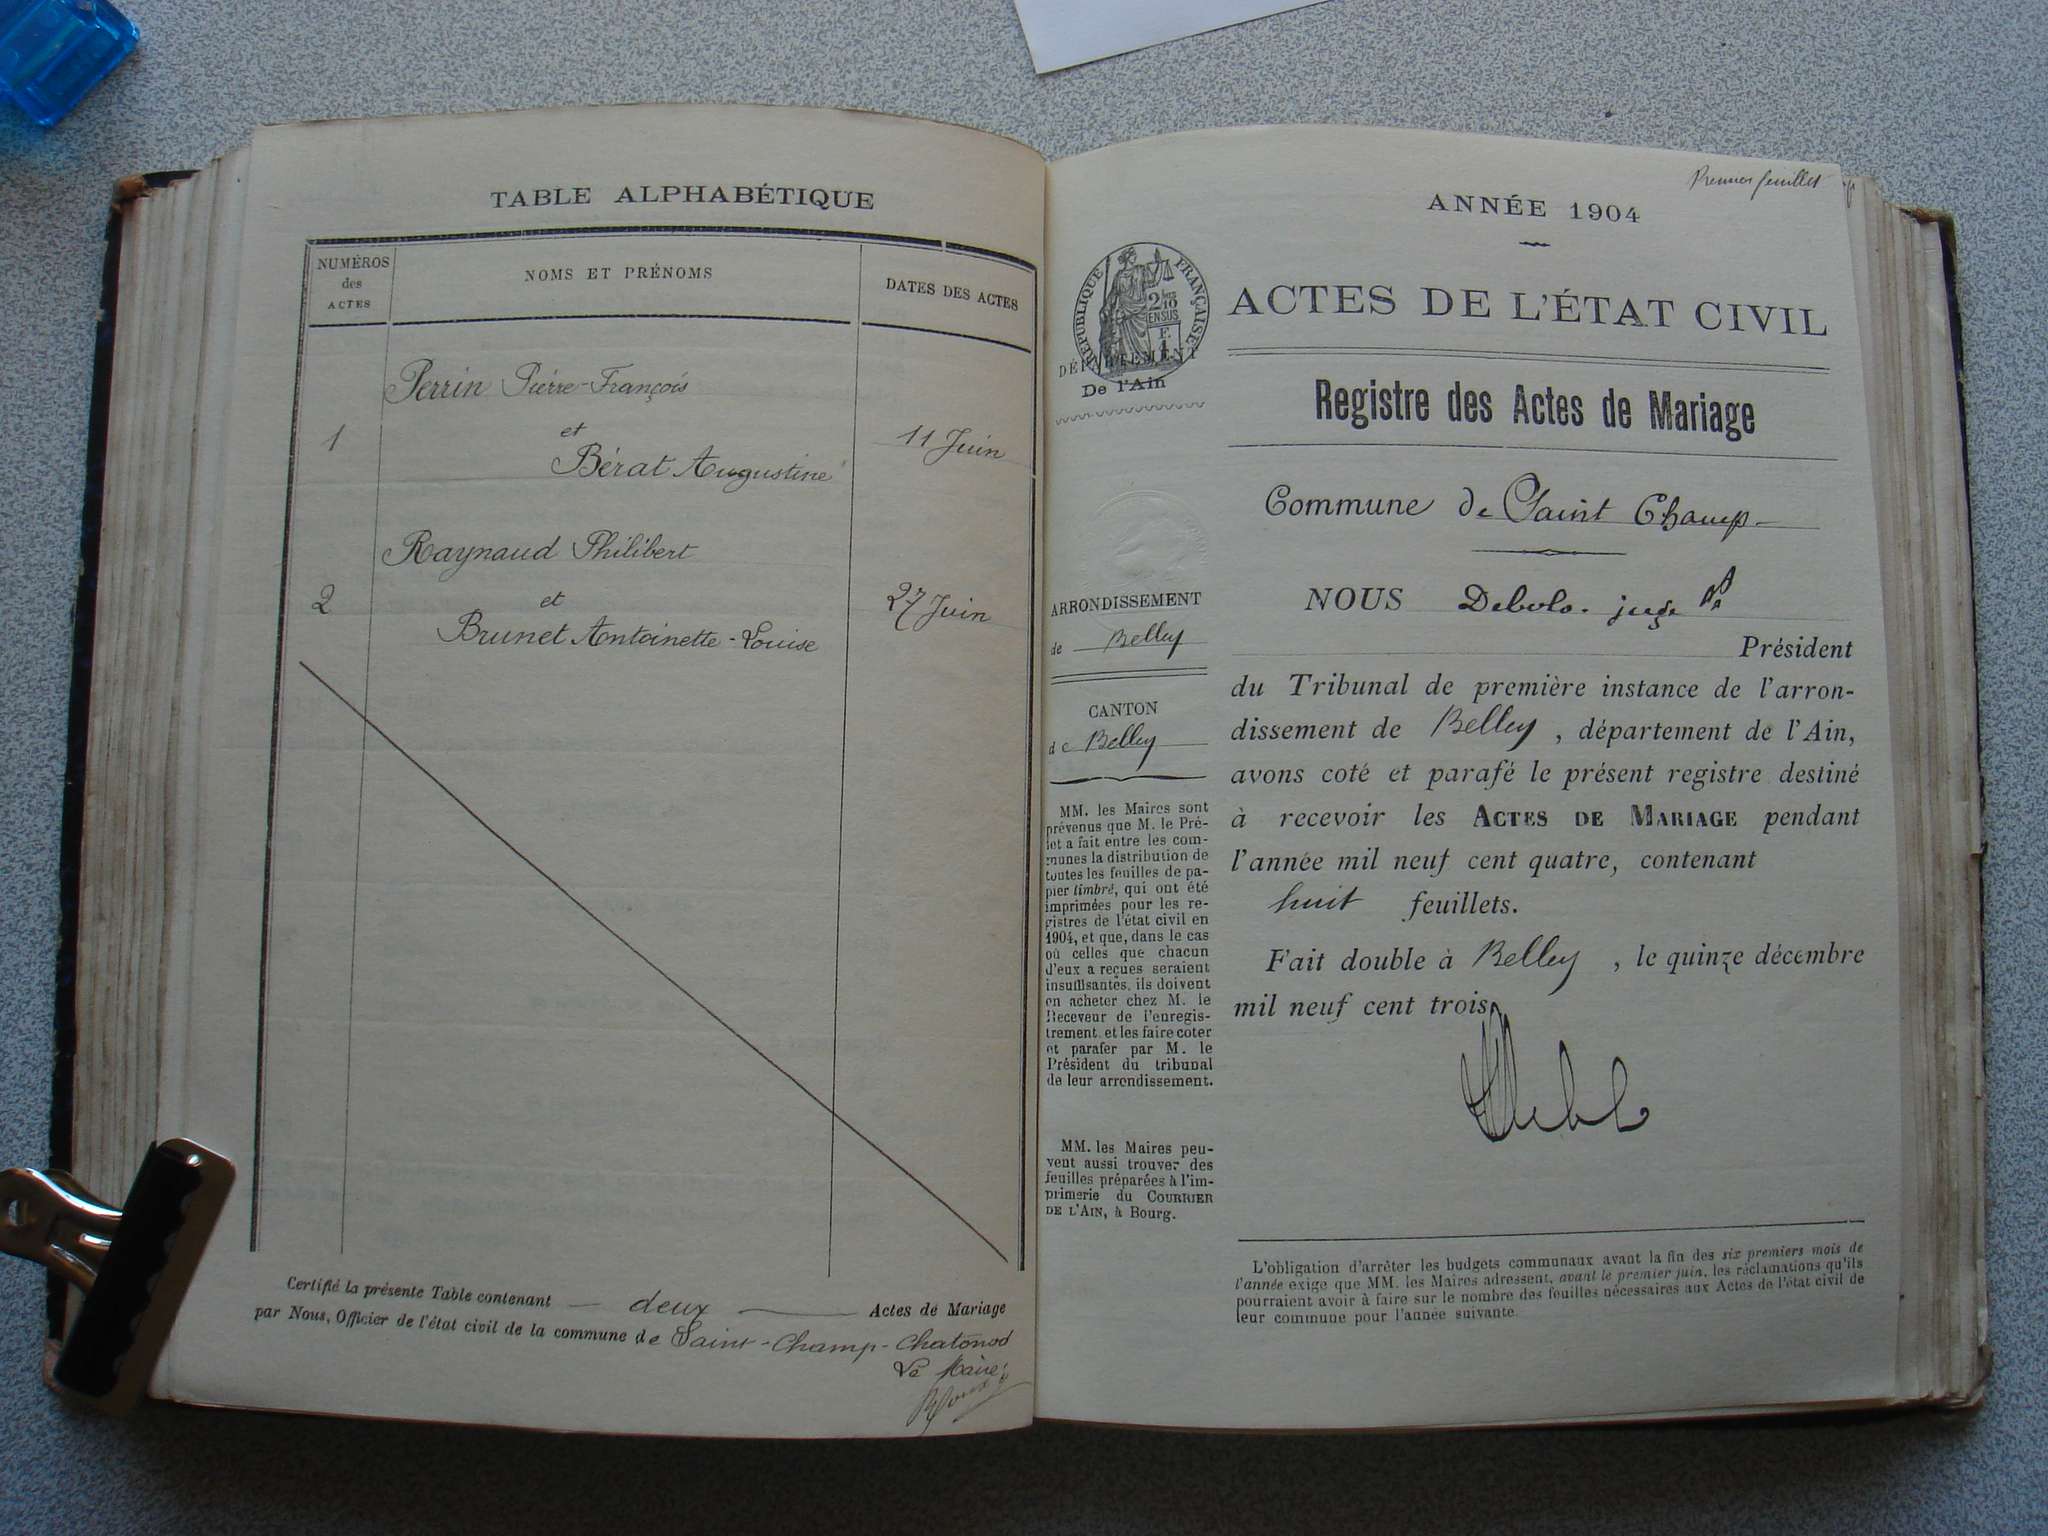 TABLE ALPHABÉTIQUE
NUMÉROS
des
ACTES
NOMS ET PRÉNOMS
DATES DES ACTES
Perrin Pierre-François
1
et
11 Juin
Bérat Augustine
Raynaud Philibert
2
et
27 Juin
Brunet Antoinette-Louise
Certifié la présente Table contenant — deux — Actes de Mariage
par Nous, Officier de l'état civil de la commune de Saint-Champ-Chatonod
Le Maire
Premier feuillet
ANNÉE 1904
RÉPUBLIQUE FRANÇAISE
DÉPARTEMENT
De l'Ain
ARRONDISSEMENT
de Belley
CANTON
de Belley
MM. les Maires sont
prévenus que M. le Pré-
fet a fait entre les com-
munes la distribution de
toutes les feuilles de pa-
pier timbré, qui ont été
imprimées pour les re-
gistres de l'état civil en
1904, et que, dans le cas
où celles que chacun
d'eux a reçues seraient
insuffisantes, ils doivent
en acheter chez M. le
Receveur de l'enregis-
trement, et les faire coter
et parafer par M. le
Président du tribunal
de leur arrondissement.
MM. les Maires peu-
vent aussi trouver des
feuilles préparées à l'im-
primerie du COURRIER
DE L'AIN, à Bourg.
ACTES DE L'ÉTAT CIVIL
Registre des Actes de Mariage
Commune de Saint Champ
NOUS Debolo. juge
Président
du Tribunal de première instance de l'arron-
dissement de Belley, département de l'Ain,
avons coté et parafé le présent registre destiné
à recevoir les ACTES DE MARIAGE pendant
l'année mil neuf cent quatre, contenant
huit feuillets.
Fait double à Belley, le quinze décembre
mil neuf cent trois.
L'obligation d'arrêter les budgets communaux avant la fin des six premiers mois de
l'année exige que MM. les Maires adressent, avant le premier juin, les réclamations qu'ils
pourraient avoir à faire sur le nombre des feuilles nécessaires aux Actes de l'état civil de
leur commune pour l'année suivante.